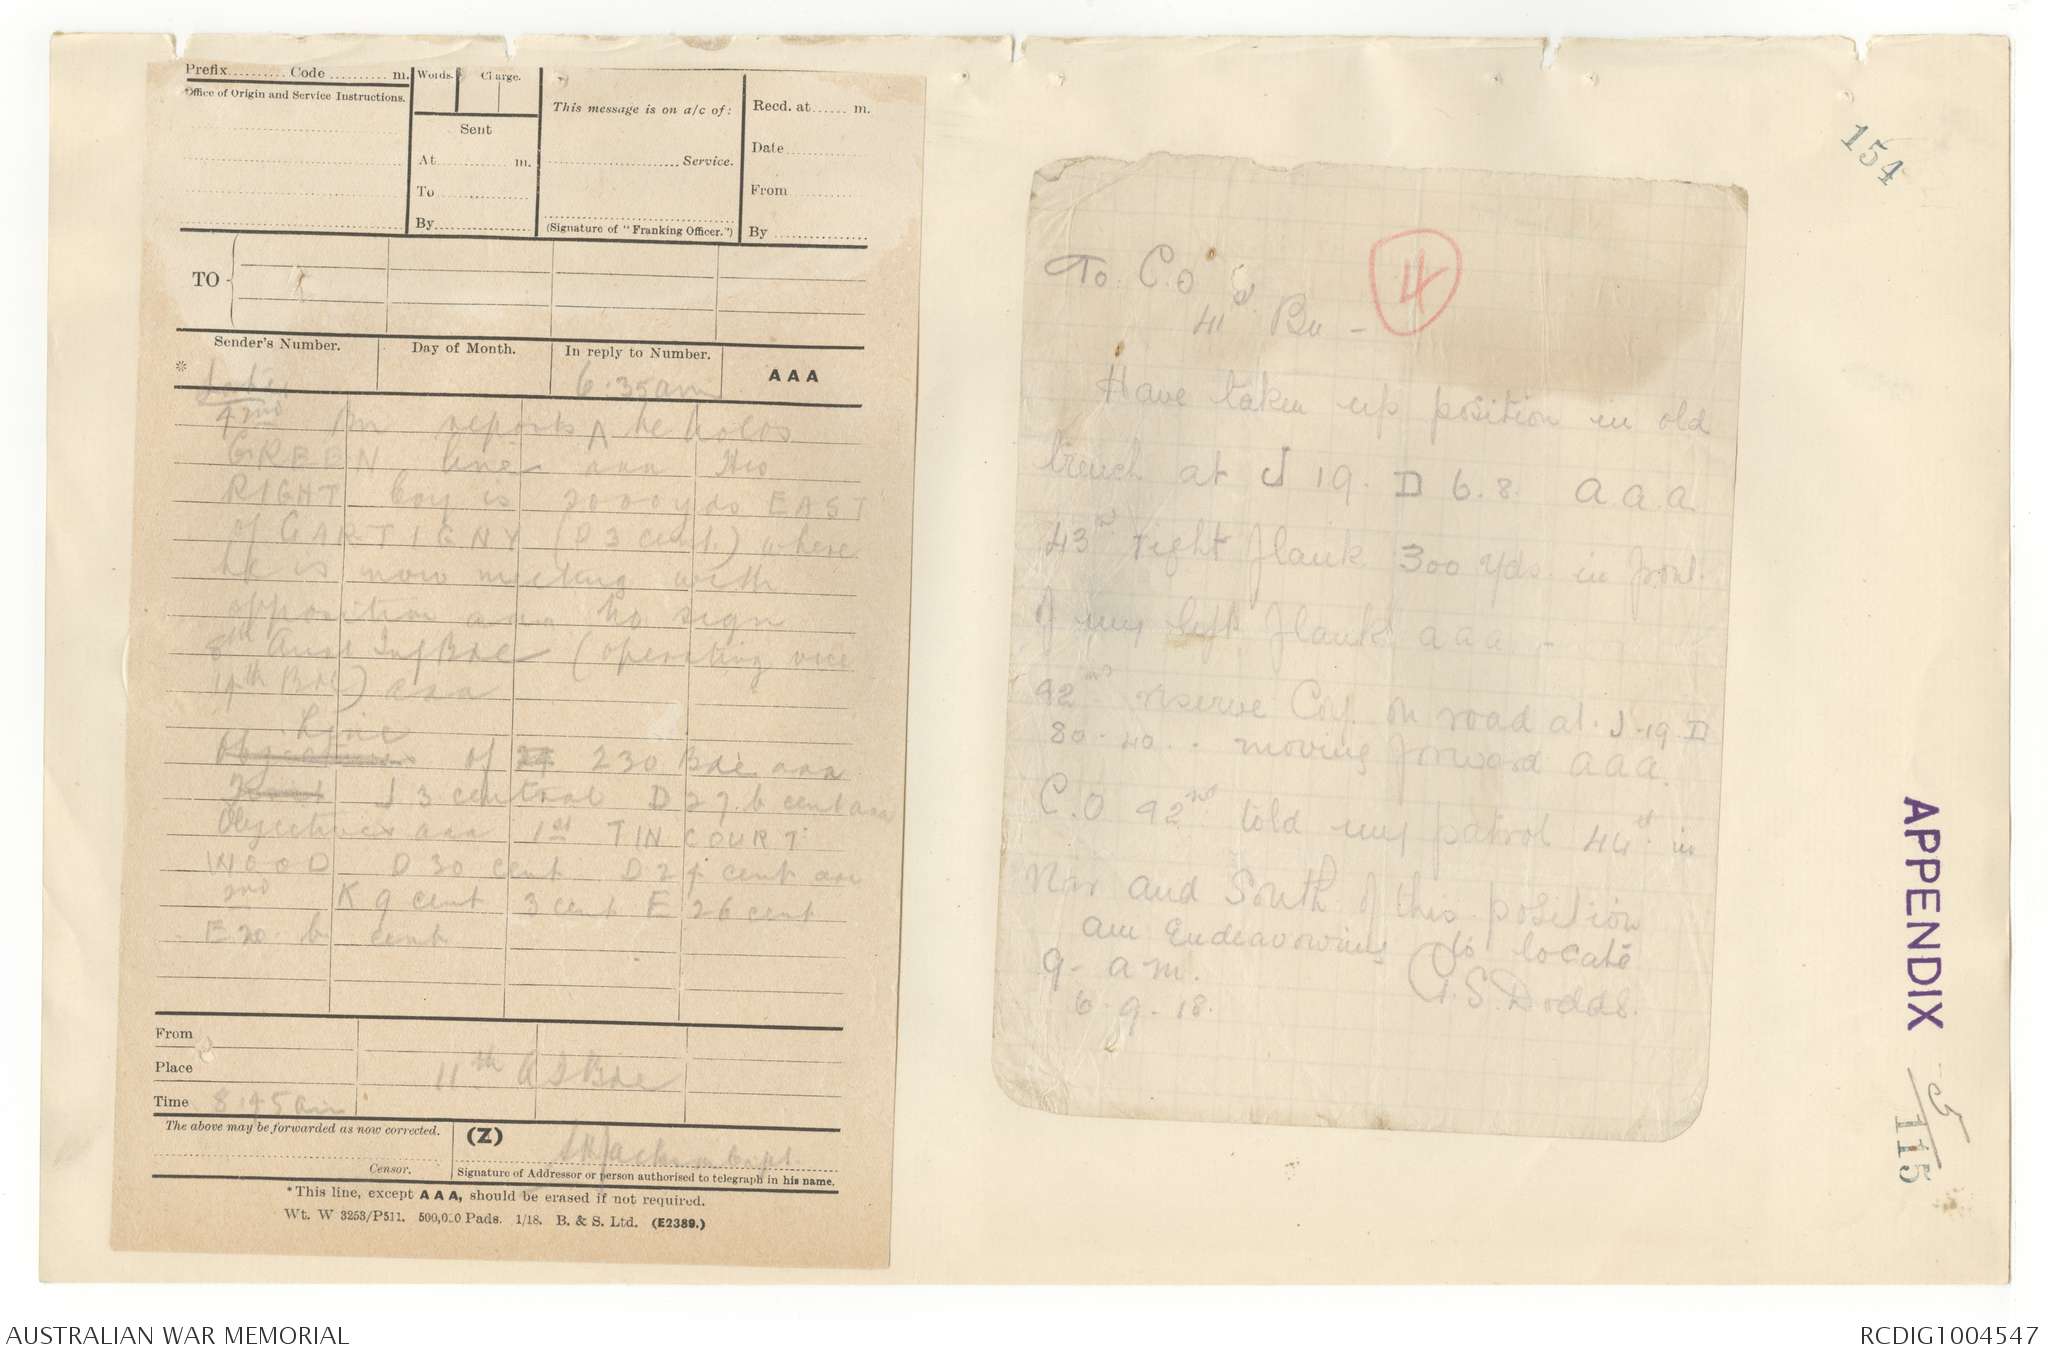 Prefix.......... Code .......... m.
Words. Charge.
Office of Origin and Service Instructions.
Sent
At ............ m.
To ............
By ............
This message is on a/c of:
............ Service.
(Signature of "Franking Officer.")
Recd. at ...... m.
Date ............
From ............
By ............
TO
Sender's Number. Day of Month. In reply to Number. AAA
*
Later 6.35 am
42nd Bn reports ^ he holds
GREEN line aaa His
RIGHT boy is 2000 yds EAST
of CARTIGNY ( 3 cent.) where
he is now meeting with
opposition aaa no sign
8th Aust Inf Bde (operating vice
14th Bde) aaa
Line
Objectives of 24 230 Bde aaa
J 3 central D 27. b cent aaa
Objectives aaa 1st TINCOURT
WOOD D 30 cent D 24 cent aaa
2nd K 9 cent 3 cent E 26 cent
E 20. b cent
From
Place 11th A I Bde
Time 8.45 am
The above may be forwarded as now corrected. (Z)
Jackson Capt.
Censor. Signature of Addressor or person authorised to telegraph in his name.
*This line, except AAA, should be erased if not required.
Wt. W 3253/P511. 500,000 Pads. 1/18. B. & S. Ltd. (E2389.)
154
To C.O
4
41st Bn -
Have taken up position in old
trench at J 19. D 6.8. a.a.a
43rd right flank 300 yds. in front
of my left flank aaa -
42nd reserve Coy. on road at J.19.D
80.40.. moving forward aaa.
C.O 42nd told my patrol 44th in
rear and South of this position
am Endeavouring to locate
9- a.m. S. Dodds.
6.9.18.
APPENDIX 5/115
AUSTRALIAN WAR MEMORIAL
RCDIG1004547